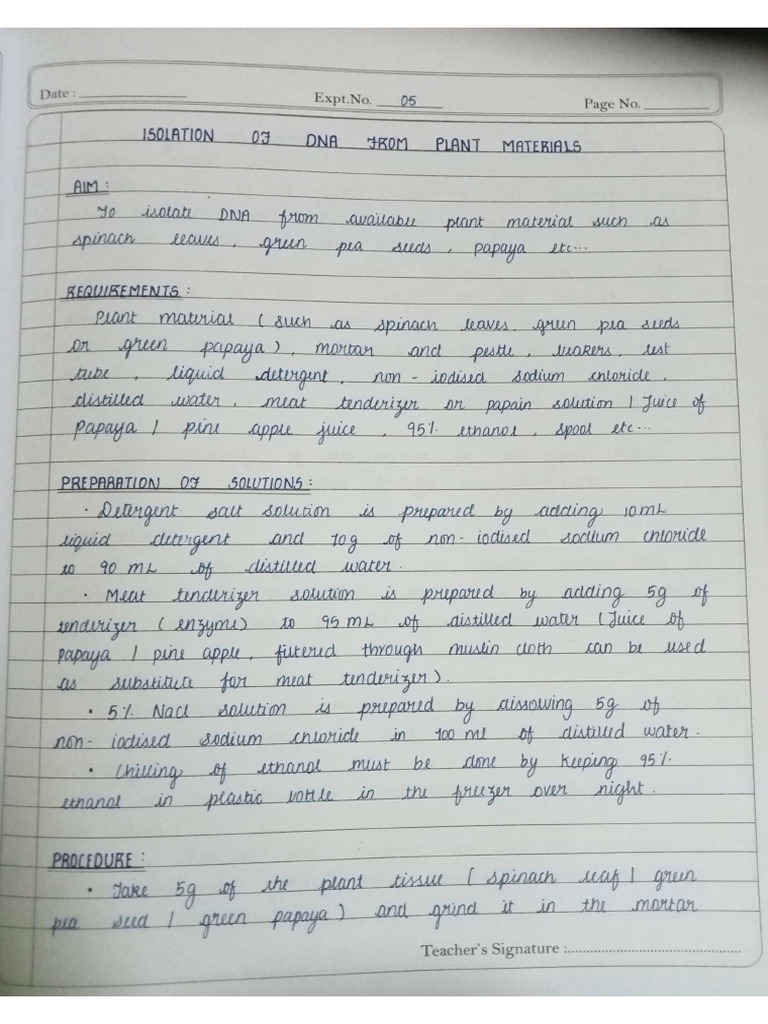 Date : Expt.No. 05 Page No.
ISOLATION OF DNA FROM PLANT MATERIALS
AIM :
To isolate DNA from available plant material such as
spinach leaves, green pea seeds, papaya etc...
REQUIREMENTS :
Plant material ( such as spinach leaves, green pea seeds
or green papaya ), mortar and pestle, beakers, test
tube, liquid detergent, non - iodised sodium chloride,
distilled water, meat tenderizer or papain solution / Juice of
Papaya / pine apple juice, 95% ethanol, spool etc...
PREPARATION OF SOLUTIONS :
• Detergent salt solution is prepared by adding 10mL
liquid detergent and 10g of non- iodised sodium chloride
to 90 mL of distilled water.
• Meat tenderizer solution is prepared by adding 5g of
tenderizer ( enzyme) to 95 mL of distilled water (Juice of
papaya / pine apple, filtered through muslin cloth can be used
as substitute for meat tenderizer).
• 5% Nacl solution is prepared by dissolving 5g of
non- iodised sodium chloride in 100 ml of distilled water.
• Chilling of ethanol must be done by keeping 95%
ethanol in plastic bottle in the freezer over night.
PROCEDURE :
• Take 5g of the plant tissue ( spinach leaf / green
pea seed / green papaya ) and grind it in the mortar
Teacher's Signature :